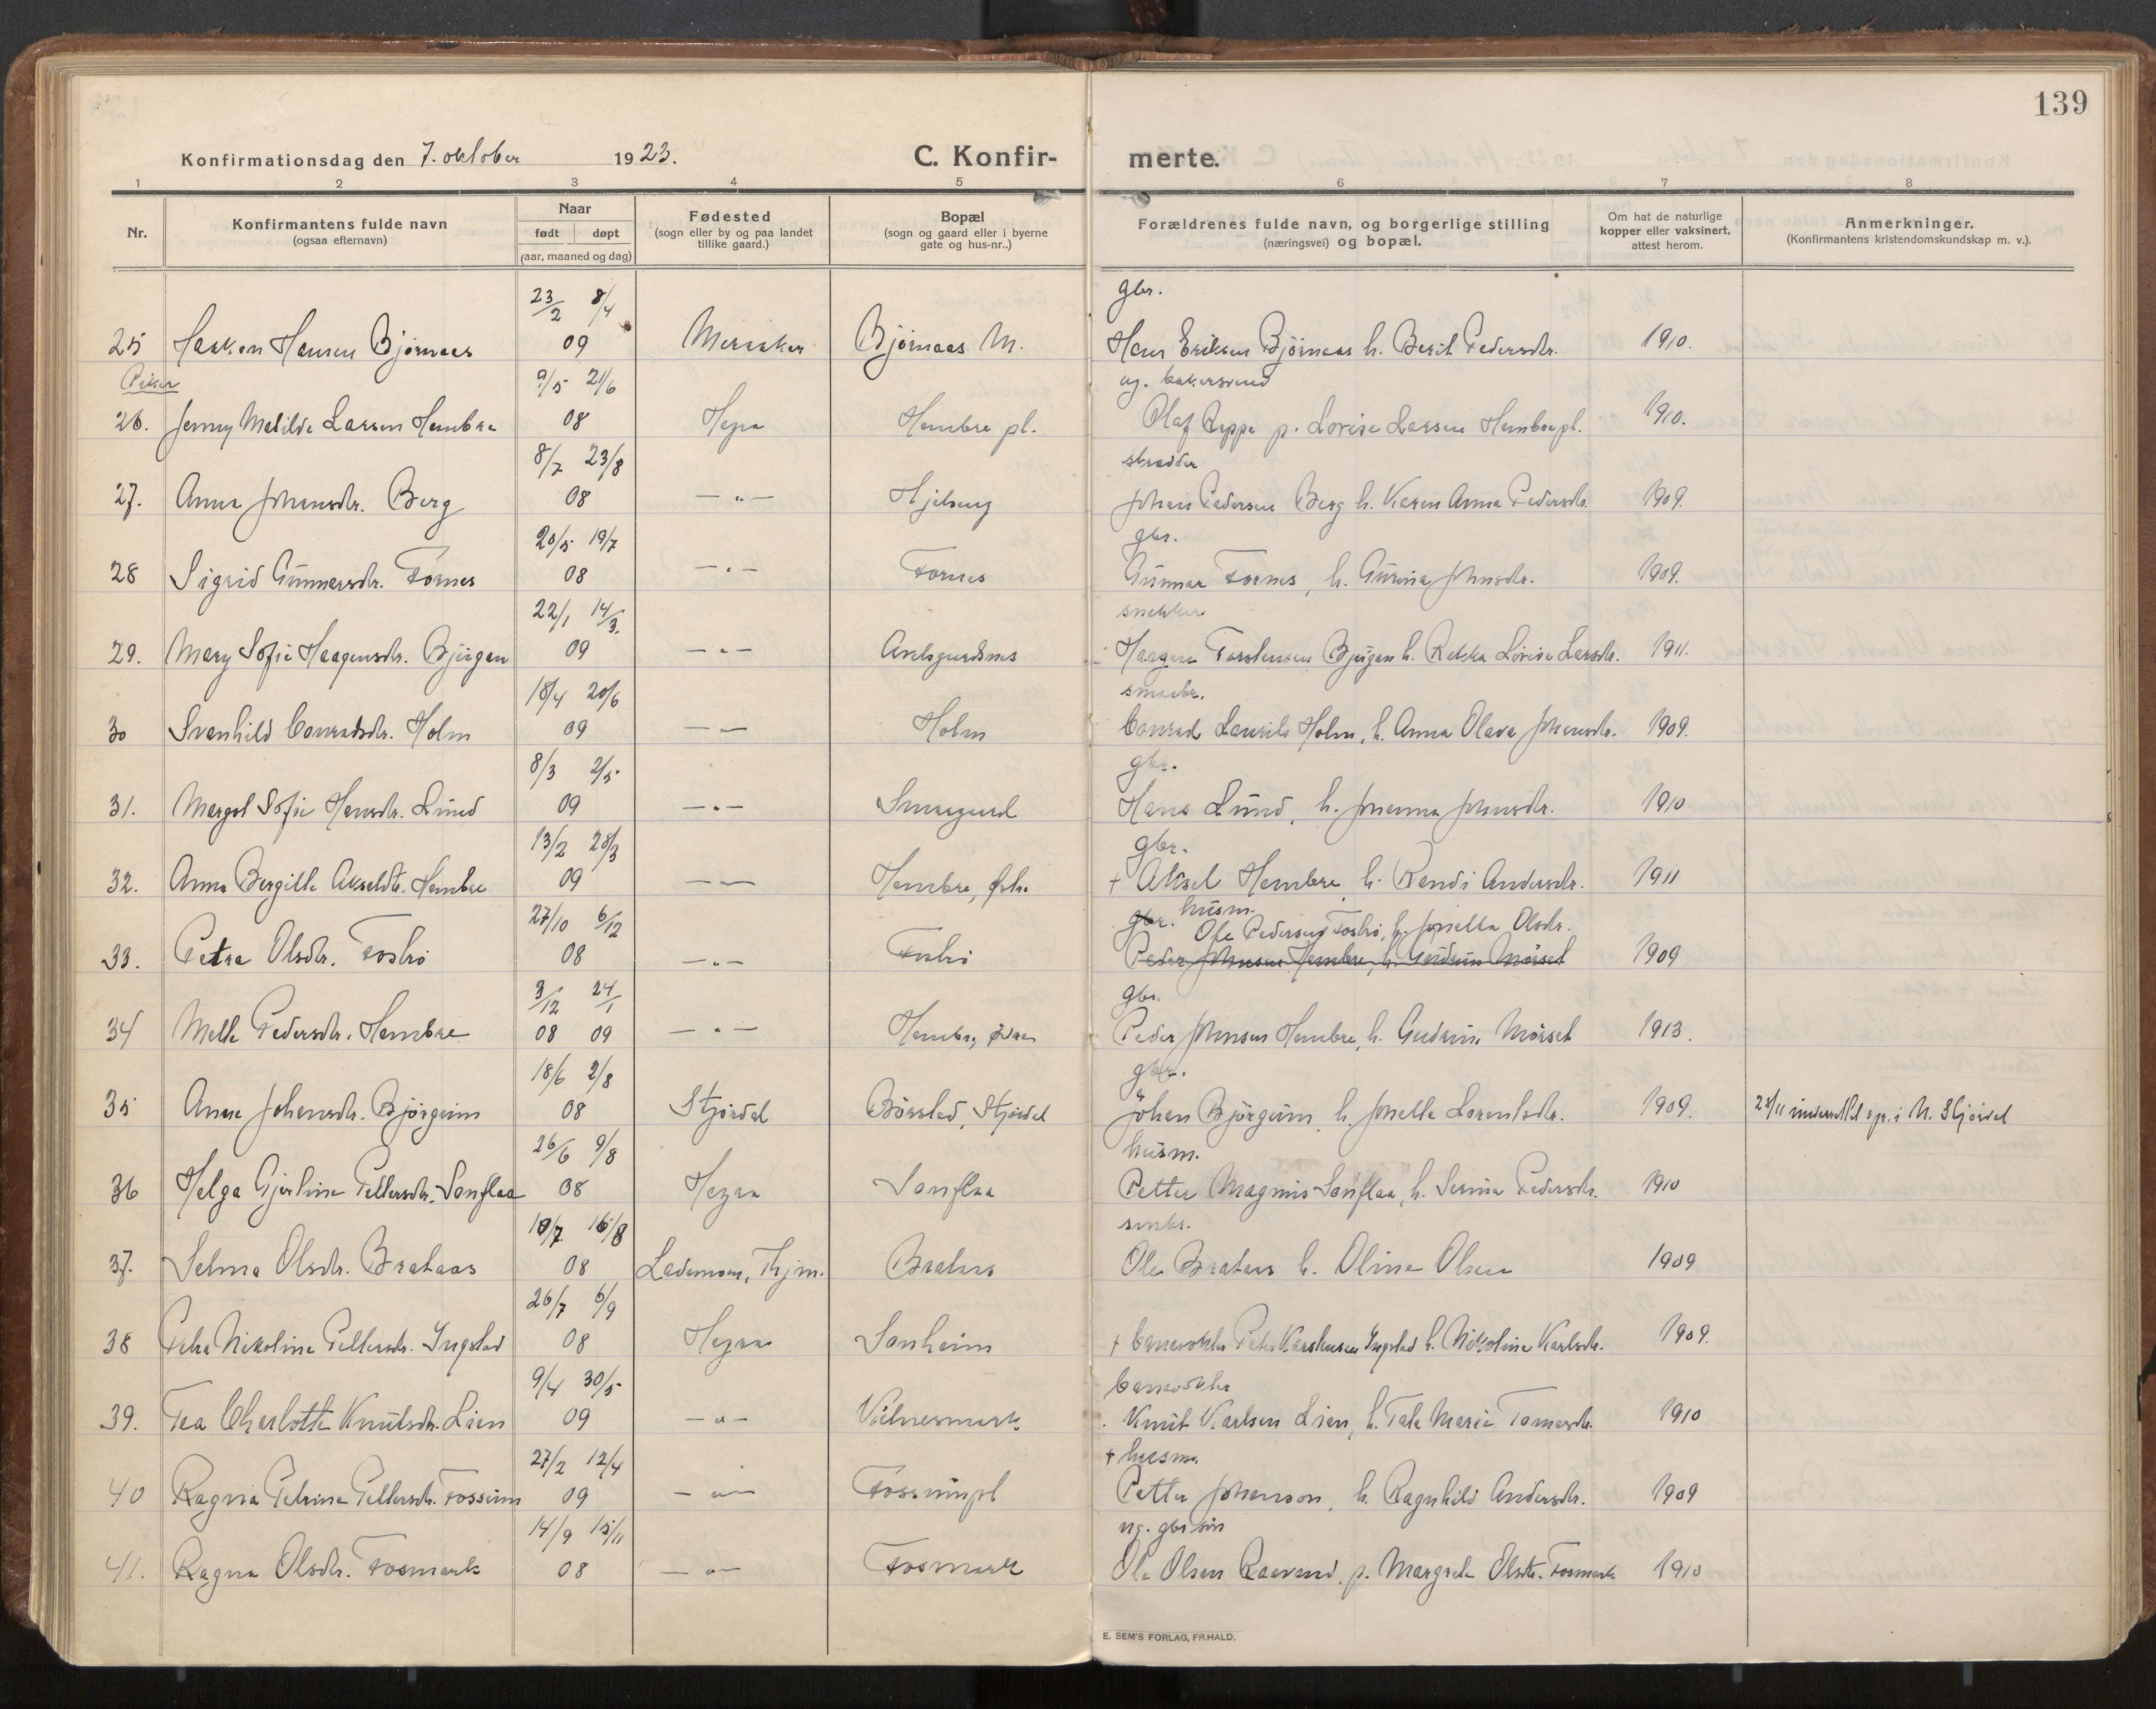 139
Konfirmationsdag den 7. oktober 1923. C. Konfir- merte.
1 2 3 4 5 6 7 8
Nr. Konfirmantens fulde navn (ogsaa efternavn) Naar født døpt (aar, maaned og dag) Fødested (sogn eller by og paa landet tillike gaard.) Bopæl (sogn og gaard eller i byerne gate og hus-nr..) Forældrenes fulde navn, og borgerlige stilling (næringsvei) og bopæl. Om hat de naturlige kopper eller vaksinert, attest herom. Anmerkninger. (Konfirmantens kristendomskundskap m. v.).
23/2 8/4 gbr.
25 Haakon Hansen Bjørnaas 09 Meraaker Bjørnaas M. Hans Eriksen Bjørnaas h. Berit Pedersdtr. 1910.
Piker 9/5 21/6 ug. bakersvend
26. Jenny Matilde Larsen Hembre 08 Hegra Hembre pl. Olaf Reppe p. Lovise Larsen Hembre pl. 1910.
8/7 23/8 skrædder
27. Anna Johansdtr. Berg 08 — " — Hjelseng Johan Pedersen Berg h. Karen Anna Pedersdtr. 1909.
20/5 19/7 gbr.
28 Sigrid Gunnarsdtr. Fornes 08 — " — Fornes Gunnar Fornes, h. Gurina Johnsdtr. 1909.
22/1 14/3. snekker
29. Mary Sofie Haagensdtr. Bjørgan 09 — " — Avelsgaardsnes Haagen Torstensen Bjørgan h. Rekka Lovise Larsdtr. 1911.
18/4 20/6 smaabr.
30 Svanhild Conradsdtr. Holm 09 — " — Holm Conrad Laurits Holm, h. Anna Olava Johansdtr. 1909.
8/3 2/5 gbr.
31. Margot Sofie Hansdtr. Lund 09 — " — Smaagaard Hans Lund, h. Johanna Johnsdtr. 1910
13/2 28/3 gbr.
32. Anna Bergitte Akseldtr. Hembre 09 — " — Hembre, østre + Aksel Hembre, h. Randi Andersdtr. 1911
27/10 6/12 gbr. husm. Ole Pedersen Fosbrö, h. Jonetta Olsdtr.
33. Petra Olsdtr. Fosbrö 08 — " — Fosbrö Peder Johnsen Hembre, h. Gudrun Mørset 1909
3/12 24/1 gbr.
34 Mette Pedersdtr. Hembre 08 09 — " — Hembre, øvre Peder Johnsen Hembre, h. Gudrun Mørset 1913.
18/6 2/8 gbr.
35 Anne Johansdtr. Bjørgum 08 Stjørdal Børstad, Stjørdal Johan Bjørgum h. Jonetta Lorentsdtr. 1909. 28/11 innmeldt sp. i N. Stjørdal
26/6 9/8 husm.
36 Helga Gjertine Pettersdtr. Sonflaa 08 Hegra Sonflaa Petter Magnus Sonflaa, h. Serina Pedersdtr. 1910
10/7 16/8 smbr.
37. Selma Olsdtr. Brataas 08 Lademoen, Thjm. Brataas Ole Brataas h. Oline Olsen 1909
26/7 6/9
38 Petra Nikoline Pettersdtr. Ingstad 08 Hegra Sonheim + banevokter Peter Karstensen Ingstad h. Nikoline Karlsdtr. 1909.
9/4 30/5 banevokter
39. Tea Charlotte Knutsdtr. Lien 09 — " — Vælnesmark Knut Karlsen Lien, h. Tale Marie Tomasdtr. 1910
27/2 12/4 + husm.
40 Ragna Petrine Pettersdtr. Fossum 09 — " — Fossumpl Petter Johanson, h. Ragnhild Andersdtr. 1909
14/9 15/11 ug. gbr.søn
41. Ragna Olsdtr. Fosmark 08 — " — Fosmark Ole Olsen Raavand, p. Margrete Olsdtr. Fosmark 1910
E. SEM'S FORLAG, FR.HALD.